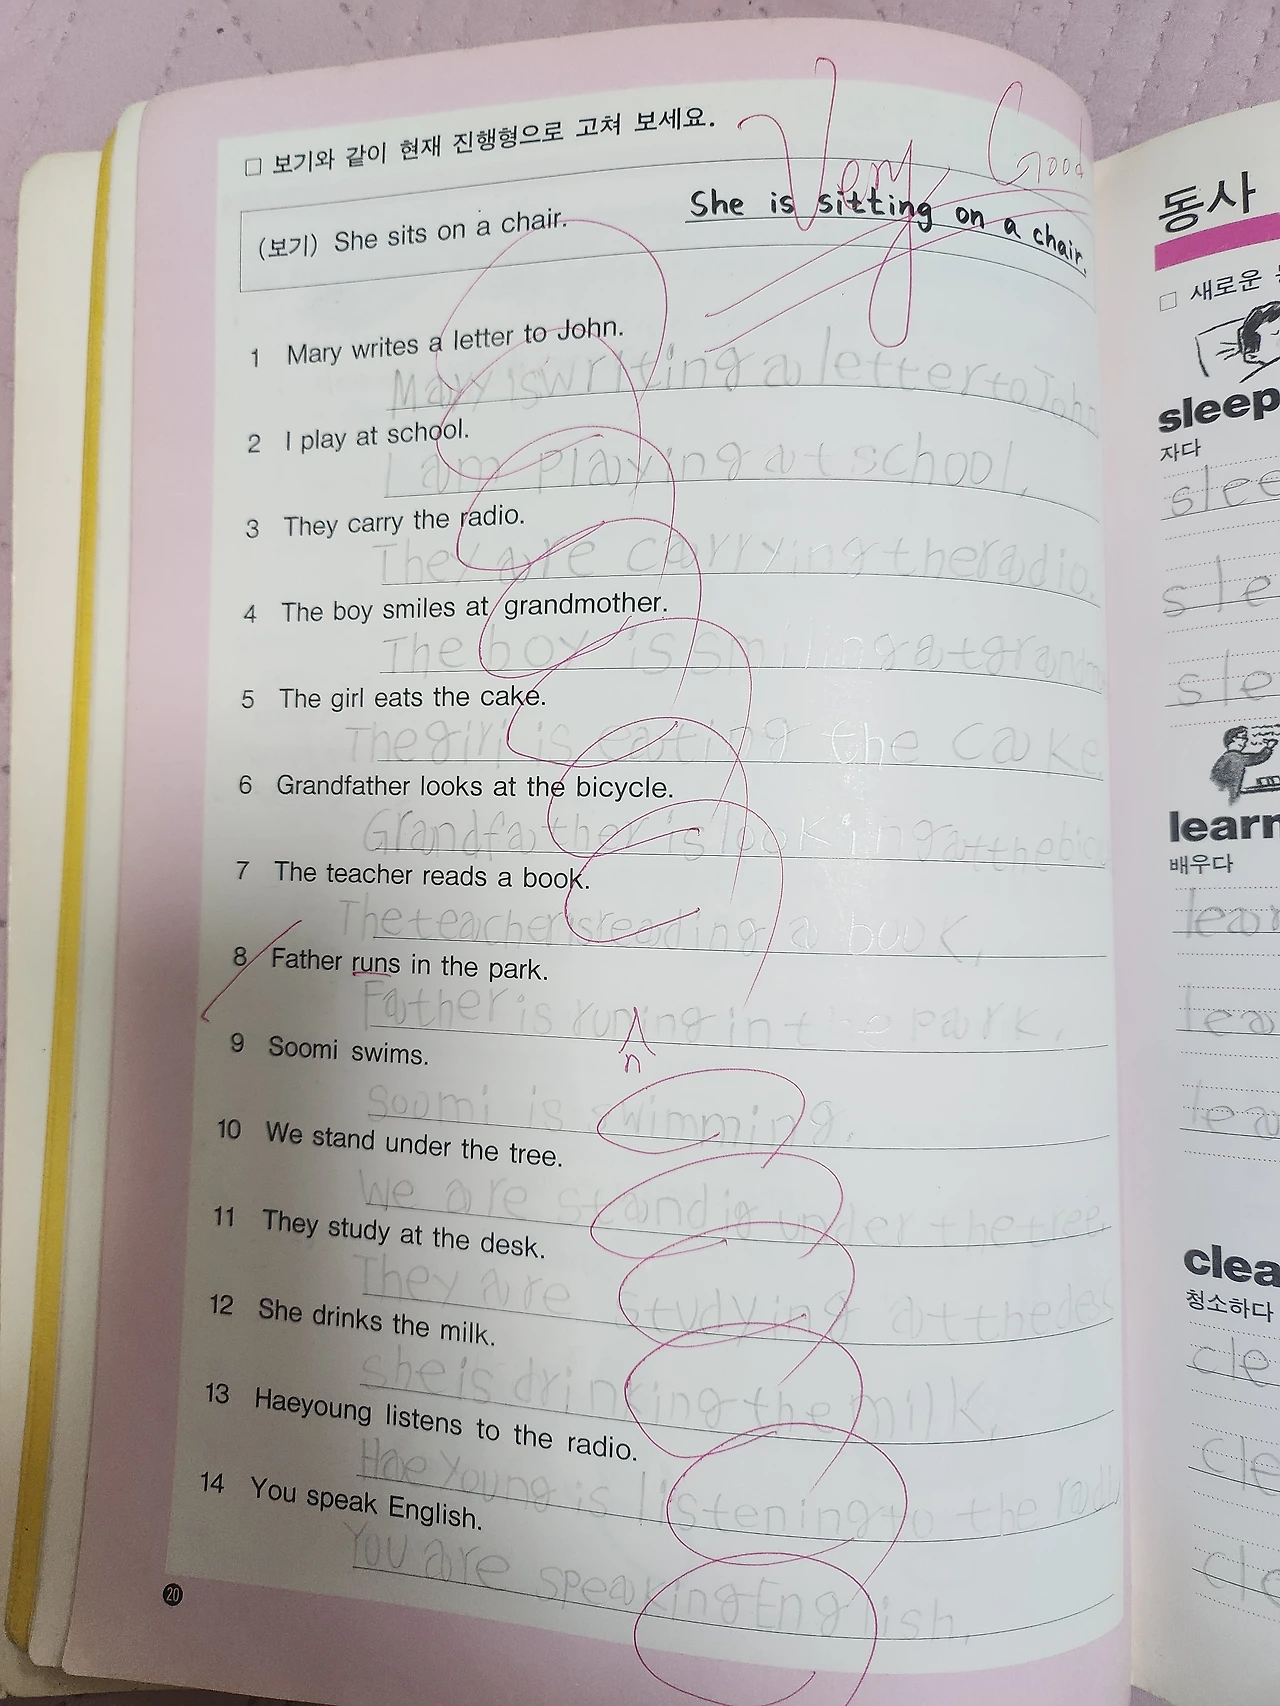 □ 보기와 같이 현재 진행형으로 고쳐 보세요.
Very Good
(보기) She sits on a chair.
She is sitting on a chair.
1 Mary writes a letter to John.
Mary is writing a letter to John
2 I play at school.
I am playing at school.
3 They carry the radio.
They are carrying the radio.
4 The boy smiles at grandmother.
The boy is smiling at grandm
5 The girl eats the cake.
The girl is eating the cake.
6 Grandfather looks at the bicycle.
Grandfather is looking at the bic
7 The teacher reads a book.
The teacher is reading a book.
8 Father runs in the park.
Father is runing in the park.
n
9 Soomi swims.
Soomi is swimming.
10 We stand under the tree.
We are standig under the tree.
11 They study at the desk.
They are studying at the des
12 She drinks the milk.
she is drinking the milk.
13 Haeyoung listens to the radio.
Hae Young is listening to the radi
14 You speak English.
You are speaking English.
20
동사
□ 새로운
sleep
자다
slee
sle
sle
learn
배우다
lear
lea
lea
clea
청소하다
cle
cle
cle